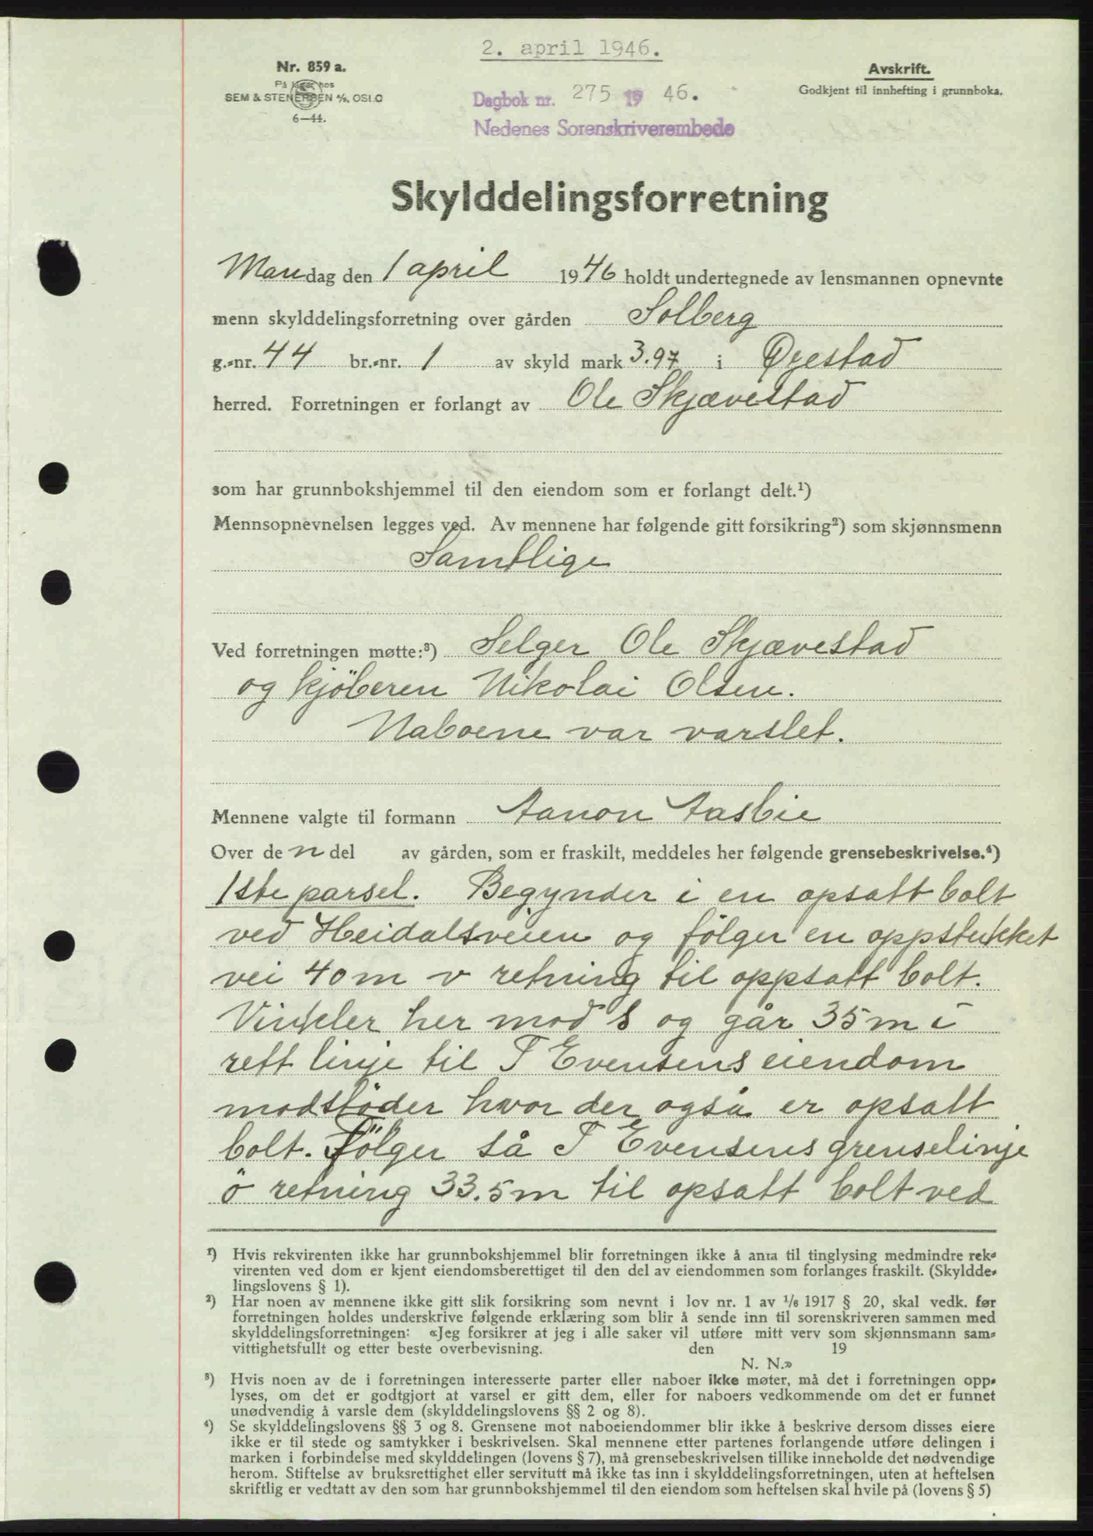 2. april 1946.
Nr. 859 a.
På lager hos
SEM & STENERSEN A/S, OSLO
6—44.
Avskrift.
Godkjent til innhefting i grunnboka.
Dagbok nr. 275 19 46.
Nedenes Sorenskriverembede
Skylddelingsforretning
Mandag den 1 april 1946 holdt undertegnede av lensmannen opnevnte
menn skylddelingsforretning over gården Solberg
g.-nr. 44 br.-nr. 1 av skyld mark 3.97 i Øyestad
herred. Forretningen er forlangt av Ole Skjævestad
som har grunnbokshjemmel til den eiendom som er forlangt delt.¹)
Mennsopnevnelsen legges ved. Av mennene har følgende gitt forsikring²) som skjønnsmenn
Samtlige
Ved forretningen møtte:³) Selger Ole Skjævestad
og kjöberen Nikolai Olsen.
Naboene var varslet.
Mennene valgte til formann Aanon Aasbie
Over den del av gården, som er fraskilt, meddeles her følgende grensebeskrivelse.⁴)
1ste parsel. Begynder i en opsatt bolt
ved Heidalsveien og fölger en oppstukket
vei 40 m v retning til oppsatt bolt.
Vinkler her mod S og går 35 m i
rett linje til T Evensens eiendom
modstöder hvor der også er opsatt
bolt. Fölger så T Evensens grenselinje
ö retning 33.5 m til opsatt bolt ved
¹) Hvis rekvirenten ikke har grunnbokshjemmel blir forretningen ikke å anta til tinglysing medmindre rek-
virenten ved dom er kjent eiendomsberettiget til den del av eiendommen som forlanges fraskilt. (Skyldde-
lingslovens § 1).
²) Har noen av mennene ikke gitt slik forsikring som nevnt i lov nr. 1 av 1/6 1917 § 20, skal vedk. før
forretningen holdes underskrive følgende erklæring som blir å sende inn til sorenskriveren sammen med
skylddelingsforretningen: «Jeg forsikrer at jeg i alle saker vil utføre mitt verv som skjønnsmann sam-
vittighetsfullt og etter beste overbevisning. den 19
N. N.»
³) Hvis noen av de i forretningen interesserte parter eller naboer ikke møter, må det i forretningen opp-
lyses, om det er godtgjort at varsel er gitt dem, eller for naboers vedkommende om det er funnet
unødvendig å varsle dem (skylddelingslovens §§ 2 og 8).
⁴) Se skylddelingslovens §§ 3 og 8. Grensene mot naboeiendommer blir ikke å beskrive dersom disses eiere
ikke er til stede og samtykker i beskrivelsen. Skal mennene etter partenes forlangende utføre delingen i
marken i forbindelse med skylddelingen (lovens § 7), må grensebeskrivelsen tillike inneholde det nødvendige
herom. Stiftelse av bruksrettighet eller servitutt må ikke tas inn i skylddelingsforretningen, uten at heftelsen
skriftlig er vedtatt av den som har grunnbokshjemmel til den eiendom som heftelsen skal hvile på (lovens § 5)